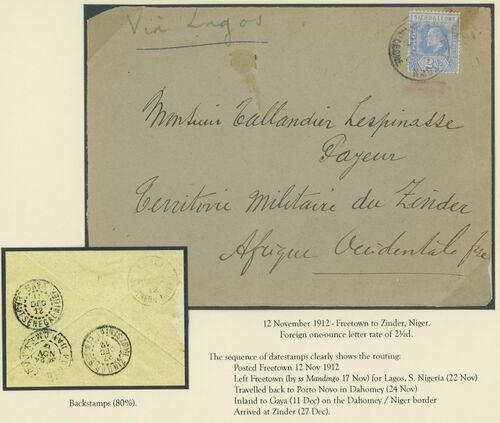 Via Lagos
SIERRA LEONE
Monsieur Tallandier Lespinasse
Payeur
Territoire Militaire du Zinder
Afrique Occidentale fse
GAYA
11
DEC
12
NOV
12 November 1912 - Freetown to Zinder, Niger.
Foreign one-ounce letter rate of 2½d.
The sequence of datestamps clearly shows the routing:
Posted Freetown 12 Nov 1912
Left Freetown (by ss Mandingo 17 Nov) for Lagos, S. Nigeria (22 Nov)
Travelled back to Porto Novo in Dahomey (24 Nov)
Inland to Gaya (11 Dec) on the Dahomey / Niger border
Arrived at Zinder (27 Dec).
Backstamps (80%).